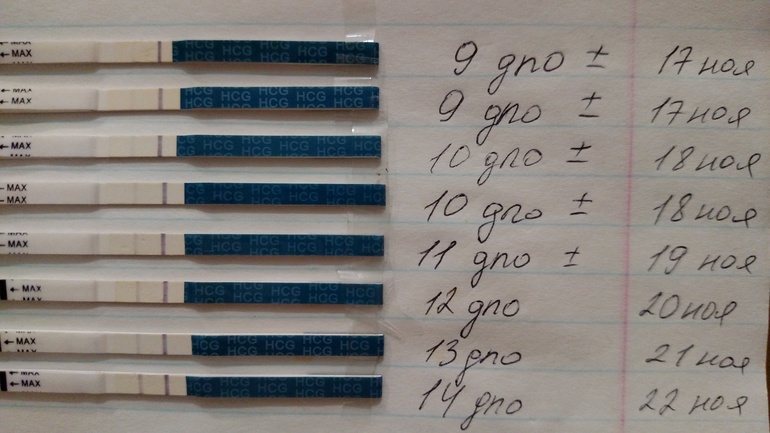 ← MAX
← MAX HCG HCG HCG HCG 9 дпо ± 17 ноя
← MAX
← MAX HCG HCG HCG HCG 9 дпо ± 17 ноя
← MAX HCG HCG HCG HCG 10 дпо ± 18 ноя
← MAX
← MAX HCG HCG HCG HCG 10 дпо ± 18 ноя
← MAX HCG HCG HCG HCG 11 дпо ± 19 ноя
← MAX HCG HCG HCG HCG 12 дпо 20 ноя
← MAX HCG HCG HCG HCG 13 дпо 21 ноя
← MAX
← MAX HCG HCG HCG HCG 14 дпо 22 ноя